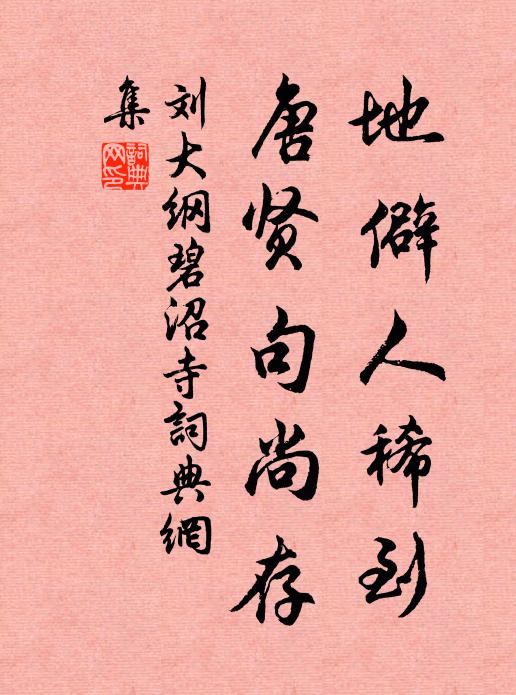 地僻人稀到
唐贤句尚存
刘大纲碧沼寺詞典網
集
詞典
网印